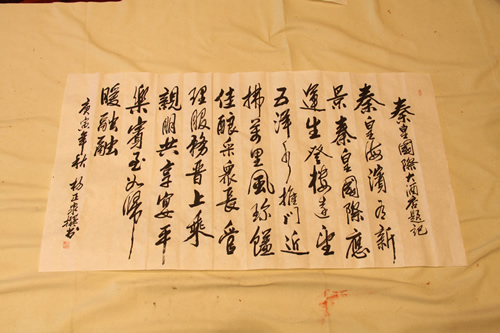 秦皇國際大酒店題記
秦皇海濱有新
景秦皇國際應
運生登樓遠望
五洋水推門近
拂萬里風珍饈
佳釀采衆長管
理服務晋上乘
親朋共享安平
樂賓至如歸
暖融融
庚寅年秋 楊正泉撰書